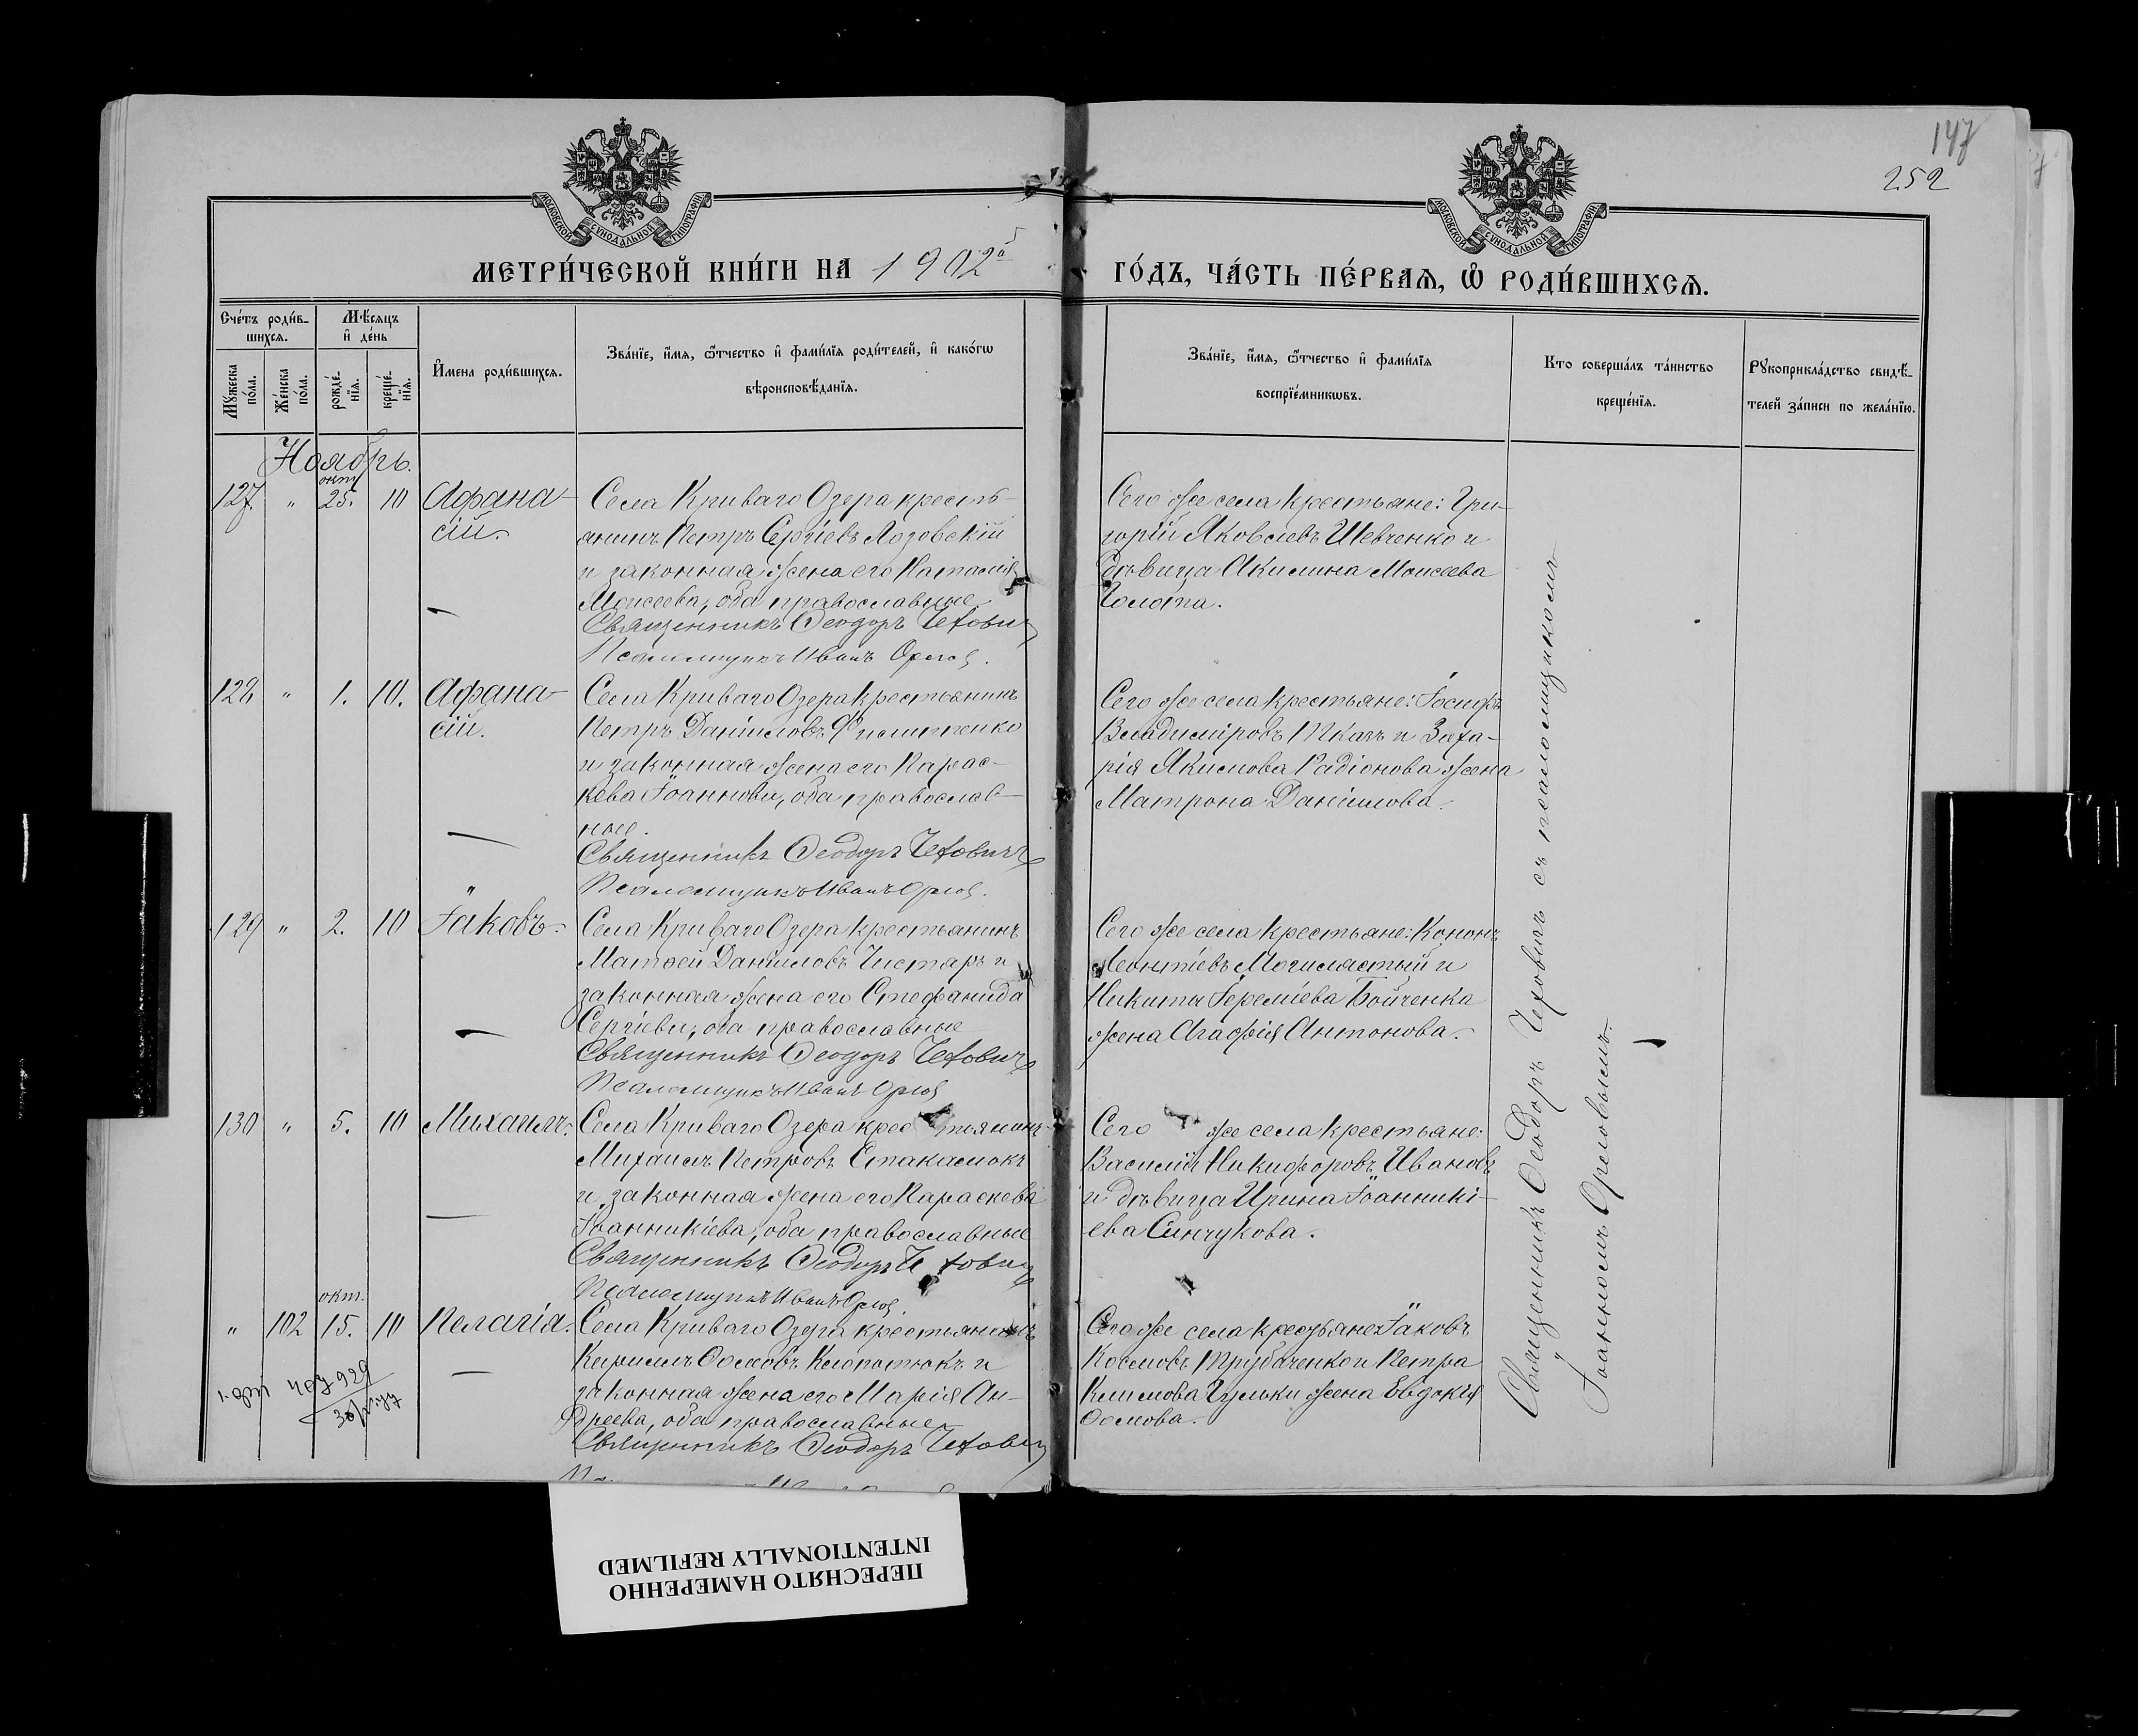 147
252
МОСКОВСКОЙ СѴНОДАЛЬНОЙ ТИПОГРАФІИ
МОСКОВСКОЙ СѴНОДАЛЬНОЙ ТИПОГРАФІИ
МЕТРИ́ЧЕСКОЙ КНИ́ГИ НА 1902й
ГО́ДЪ, ЧА́СТЬ ПЕ́РВАѦ, Ѡ҆ РОДИ́ВШИХСѦ.
Сче́тъ роди́в-
шихсѧ.
Мѣ́сѧцъ
и҆ де́нь
Мꙋ́жеска
по́ла.
Же́нска
по́ла.
рожде́-
нїѧ.
креще́-
нїѧ.
И҆мена роди́вшихсѧ.
Зва́нїе, и҆́мѧ, ѻ҆́тчество и҆ фами́лїѧ роди́телей, и҆ како́гѡ
вѣроисповѣ́данїѧ.
Зва́нїе, и҆́мѧ, ѻ҆́тчество и҆ фами́лїѧ
воспрїе́мникѡвъ.
Кто соверша́лъ та́инство
креще́нїѧ.
Рꙋкоприкла́дство свидѣ́-
телей за́писи по жела́нїю.
Ноябрь.
окт
127. " 25. 10 Афана-
сій.
Села Криваго Озера кресть-
янинъ Петръ Сергіевъ Лозовскій
и законная жена его Наталія
Моисеева, оба православные
Священникъ Ѳеодоръ Чехович
Псаломщикъ Иванъ Орлов.
Сего же села крестьяне: Гри-
горій Яковлевъ Шевченко и
дѣвица Акилина Моисеева
Голота.
128 " 1. 10. Афана-
сій.
Села Криваго Озера крестьянинъ
Петръ Даніиловъ
и законная жена его Парас-
кева Іоаннова, оба православ-
ные.
Священникъ Ѳеодоръ Чеховичъ
Псаломщикъ Иванъ Орлов.
Сего же села крестьяне: Іосифъ
Владиміровъ Ткачъ и Заха-
рія Якимова Радіонова жена
Матрона Даніилова.
129 " 2. 10 Іаковъ.
Села Криваго Озера крестьянинъ
Матѳей Даніиловъ Чистяръ и
законная жена его Стефанида
Сергіева, оба православные
Священникъ Ѳеодоръ Чеховичъ
Псаломщикъ Иванъ Орлов
Сего же села крестьяне: Кононъ
Леонтіевъ Могилястый и
Никиты Іереміева Бойченка
жена Агафія Антонова.
130 " 5. 10 Михаилъ.
Села Криваго Озера крестьянинъ
Михаилъ Петровъ Стакамокъ
и законная жена его Параскева
Іоанникіева, оба православные
Священникъ Ѳеодоръ Чехович
Псаломщикъ Иванъ Орлов.
Сего же села крестьяне:
Василій Никифоровъ Ивановъ
и дѣвица Ирина Іоанникі-
ева Синчукова.
окт.
" 102 15. 10 Пелагія.
Села Криваго Озера крестьянинъ
Кириллъ Ѳомовъ Клопотюкъ и
законная жена его Марія Ан-
дреева, оба православные
Священникъ Ѳеодоръ Чехович
Сего же села крестьяне: Іаковъ
Космовъ Трубаченко и Петра
Климова Гульки жена Евдокія
Ѳомова.
Священникъ Ѳеодоръ Чеховичъ съ псаломщикомъ
Іоанномъ Орловымъ.
ПЕРЕСНЯТО НАМЕРЕННО
INTENTIONALLY REFILMED